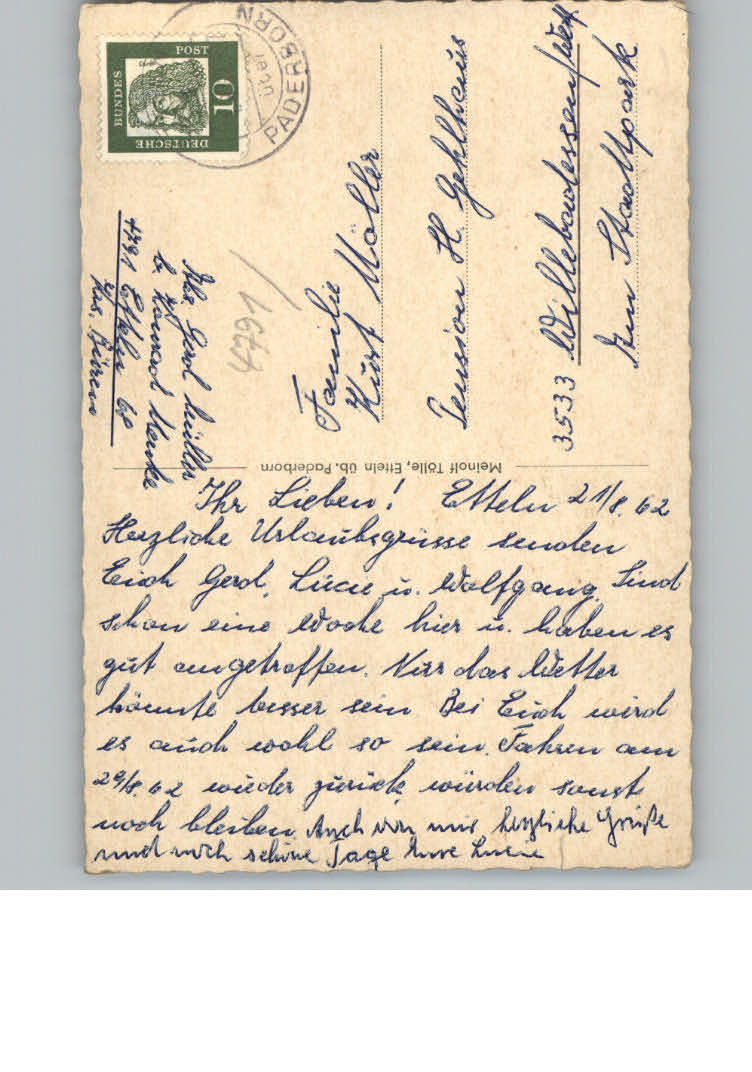 DEUTSCHE
BUNDES
POST
10
PADERBORN
über
Abs. Gerd Müller
b. Konrad Henke
4791 Etteln 68
Krs. Büren
4791
Familie
Kurt Möller
Pension H. Gehlhaus
3533 Willebadessen/Westf.
Am Stadtpark
Meinolf Tölle, Etteln üb. Paderborn
Ihr Lieben! Etteln 21/8.62
Herzliche Urlaubsgrüsse senden
Euch Gerd, Lucie u. Wolfgang. Sind
schon eine Woche hier u. haben es
gut angetroffen. Nur das Wetter
könnte besser sein. Bei Euch wird
es auch wohl so sein. Fahren am
29/8.62 wieder zurück, würden sonst
noch bleiben. Auch von mir herzliche Grüße
und noch schöne Tage Eure Lucie